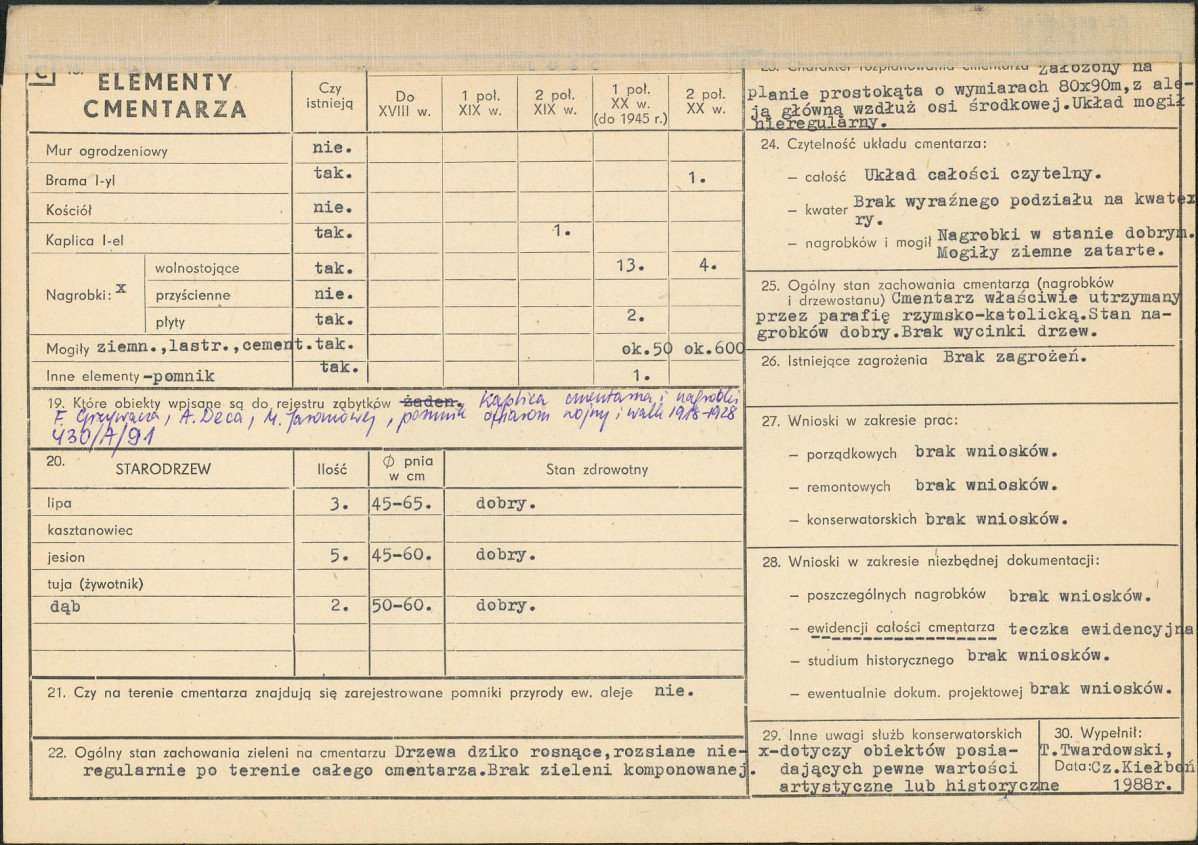 C
ELEMENTY
CMENTARZA
Czy
istnieją
Do
XVIII w.
1 poł.
XIX w.
2 poł.
XIX w.
1 poł.
XX w.
(do 1945 r.)
2 poł.
XX w.
Mur ogrodzeniowy nie.
Brama I-yl tak. 1.
Kościół nie.
Kaplica I-el tak. 1.
Nagrobki: x
wolnostojące tak. 13. 4.
przyścienne nie.
płyty tak. 2.
Mogiły ziemn.,lastr.,cement. tak. ok.50 ok.600
Inne elementy -pomnik tak. 1.
19. Które obiekty wpisane są do rejestru zabytków żaden. Kaplica cmentarna i nagrobki
F. Grzywacza, A. Deca, M. Jaroniowej, pomnik ofiarom wojny i walk 1918-1928
430/A/91
20. STARODRZEW Ilość Ø pnia w cm Stan zdrowotny
lipa 3. 45-65. dobry.
kasztanowiec
jesion 5. 45-60. dobry.
tuja (żywotnik)
dąb 2. 50-60. dobry.
21. Czy na terenie cmentarza znajdują się zarejestrowane pomniki przyrody ew. aleje nie.
22. Ogólny stan zachowania zieleni na cmentarzu Drzewa dziko rosnące,rozsiane nie-
regularnie po terenie całego cmentarza.Brak zieleni komponowanej.
23. Charakter rozplanowania cmentarza założony na
planie prostokąta o wymiarach 80x90m,z ale-
ją główną wzdłuż osi środkowej.Układ mogił
nieregularny.
24. Czytelność układu cmentarza:
– całość Układ całości czytelny.
– kwater Brak wyraźnego podziału na kwatex
ry.
– nagrobków i mogił Nagrobki w stanie dobrym.
Mogiły ziemne zatarte.
25. Ogólny stan zachowania cmentarza (nagrobków
i drzewostanu) Cmentarz właściwie utrzymany
przez parafię rzymsko-katolicką.Stan na-
grobków dobry.Brak wycinki drzew.
26. Istniejące zagrożenia Brak zagrożeń.
27. Wnioski w zakresie prac:
– porządkowych brak wniosków.
– remontowych brak wniosków.
– konserwatorskich brak wniosków.
28. Wnioski w zakresie niezbędnej dokumentacji:
– poszczególnych nagrobków brak wniosków.
– ewidencji całości cmentarza teczka ewidencyjna
– studium historycznego brak wniosków.
– ewentualnie dokum. projektowej brak wniosków.
29. Inne uwagi służb konserwatorskich
x-dotyczy obiektów posia-
dających pewne wartości
artystyczne lub historyczne
30. Wypełnił:
T.Twardowski,
Data: Cz.Kiełboń
1988r.